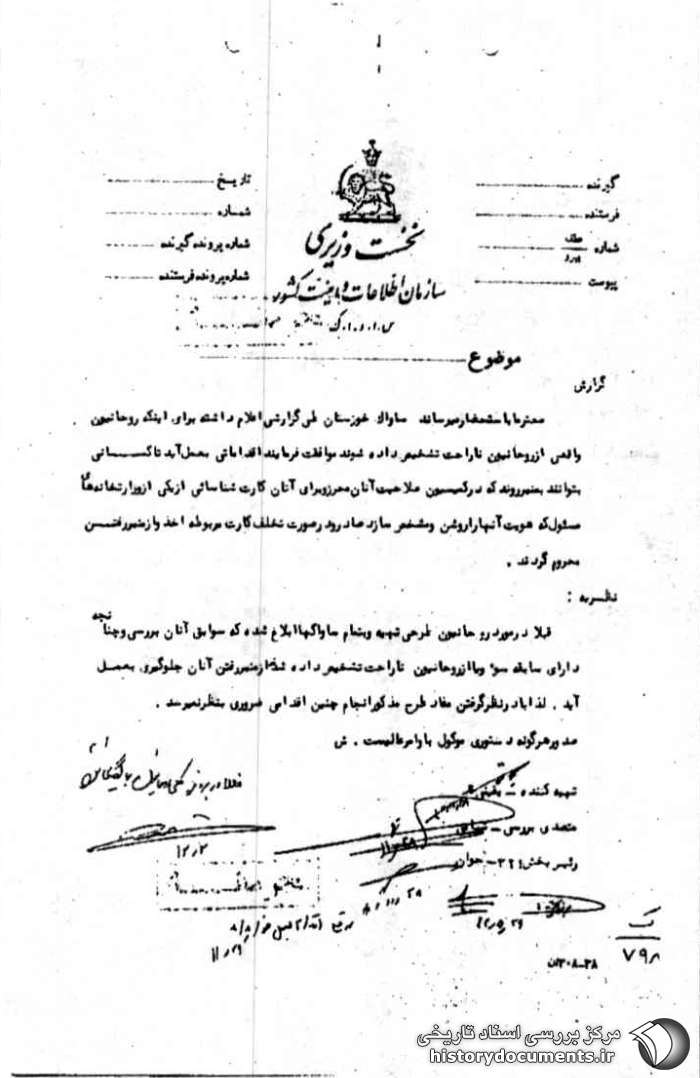 گیرنده
تاریخ
فرستنده
شماره
شماره
شماره پرونده گیرنده
پیوست
شماره پرونده فرستنده
نخست وزیری
سازمان اطلاعات و امنیت کشور
س.ا.و.ا.ک
موضوع
گزارش
محترما باستحضار میرساند ساواک خوزستان طی گزارشی اعلام داشته برای اینکه روحانیون
واقعی از روحانیون ناراحت تشخیص داده شوند موافقت فرمایند اقداماتی بعمل آید تا کسانی
بتوانند بمنبر روند که در کمیسیون صلاحیت آنان محرز و برای آنان کارت شناسائی از یکی از وزارتخانه های
مسئول که هویت آنها را روشن و مشخص سازد صادر و در صورت تخلف کارت مربوطه اخذ و از منبر رفتن
محروم گردند .
نظریه :
قبلا در مورد روحانیون طرحی تهیه و بتمام ساواکها ابلاغ شده که سوابق آنان بررسی و چنانچه
دارای سابقه سوء و یا از روحانیون ناراحت تشخیص داده شد از منبر رفتن آنان جلوگیری بعمل
آید . لذا با در نظر گرفتن مفاد طرح مذکور انجام چنین اقدامی ضروری بنظر نمیرسد .
صدور هرگونه دستوری موکول باوامر عالیست . ش
تهیه کننده -
متصدی بررسی -
۱۲/۲
رئیس بخش ۳۲۱ - جوان
۷۹۸
مرکز بررسی اسناد تاریخی
historydocuments.ir